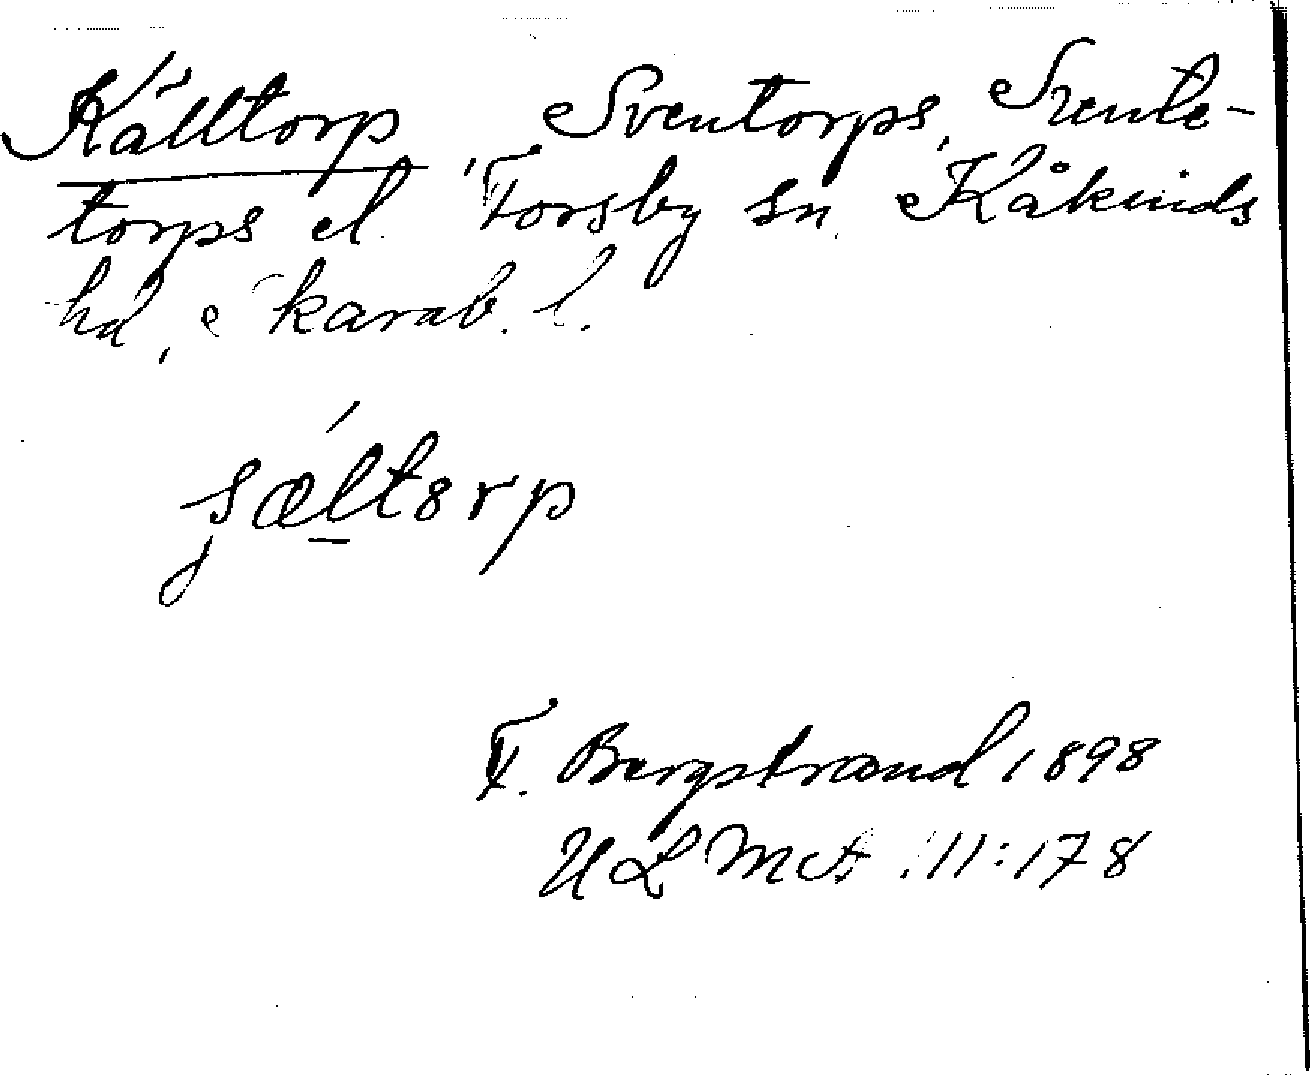 Källtorp, Sventorps, Svente-
torps el. Forsby sn. Kåkinds
hd, Skarab. l.
ʃæltorp
F. Bergstrand 1898
ULMA 11:178